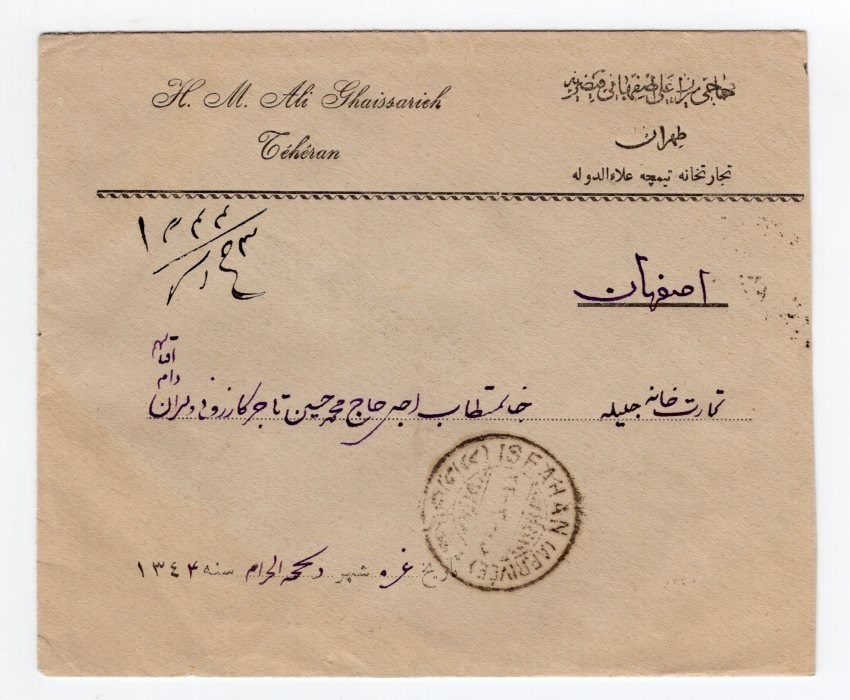 H. M. Ali Ghaissarieh
Téhéran
حاجی میرزا علی اصفهانی قیصریه
طهران
تجارتخانه تیمچه علاءالدوله
۱۳۴۴
اصفهان
تجارت خانه جلیله
جنابمستطاب اجل حاج محمد حسین تاجر کازرونی
دام
ISFAHAN (ARRIVÉE)
تاریخ غره شهر ذیحجه الحرام سنه ۱۳۴۴